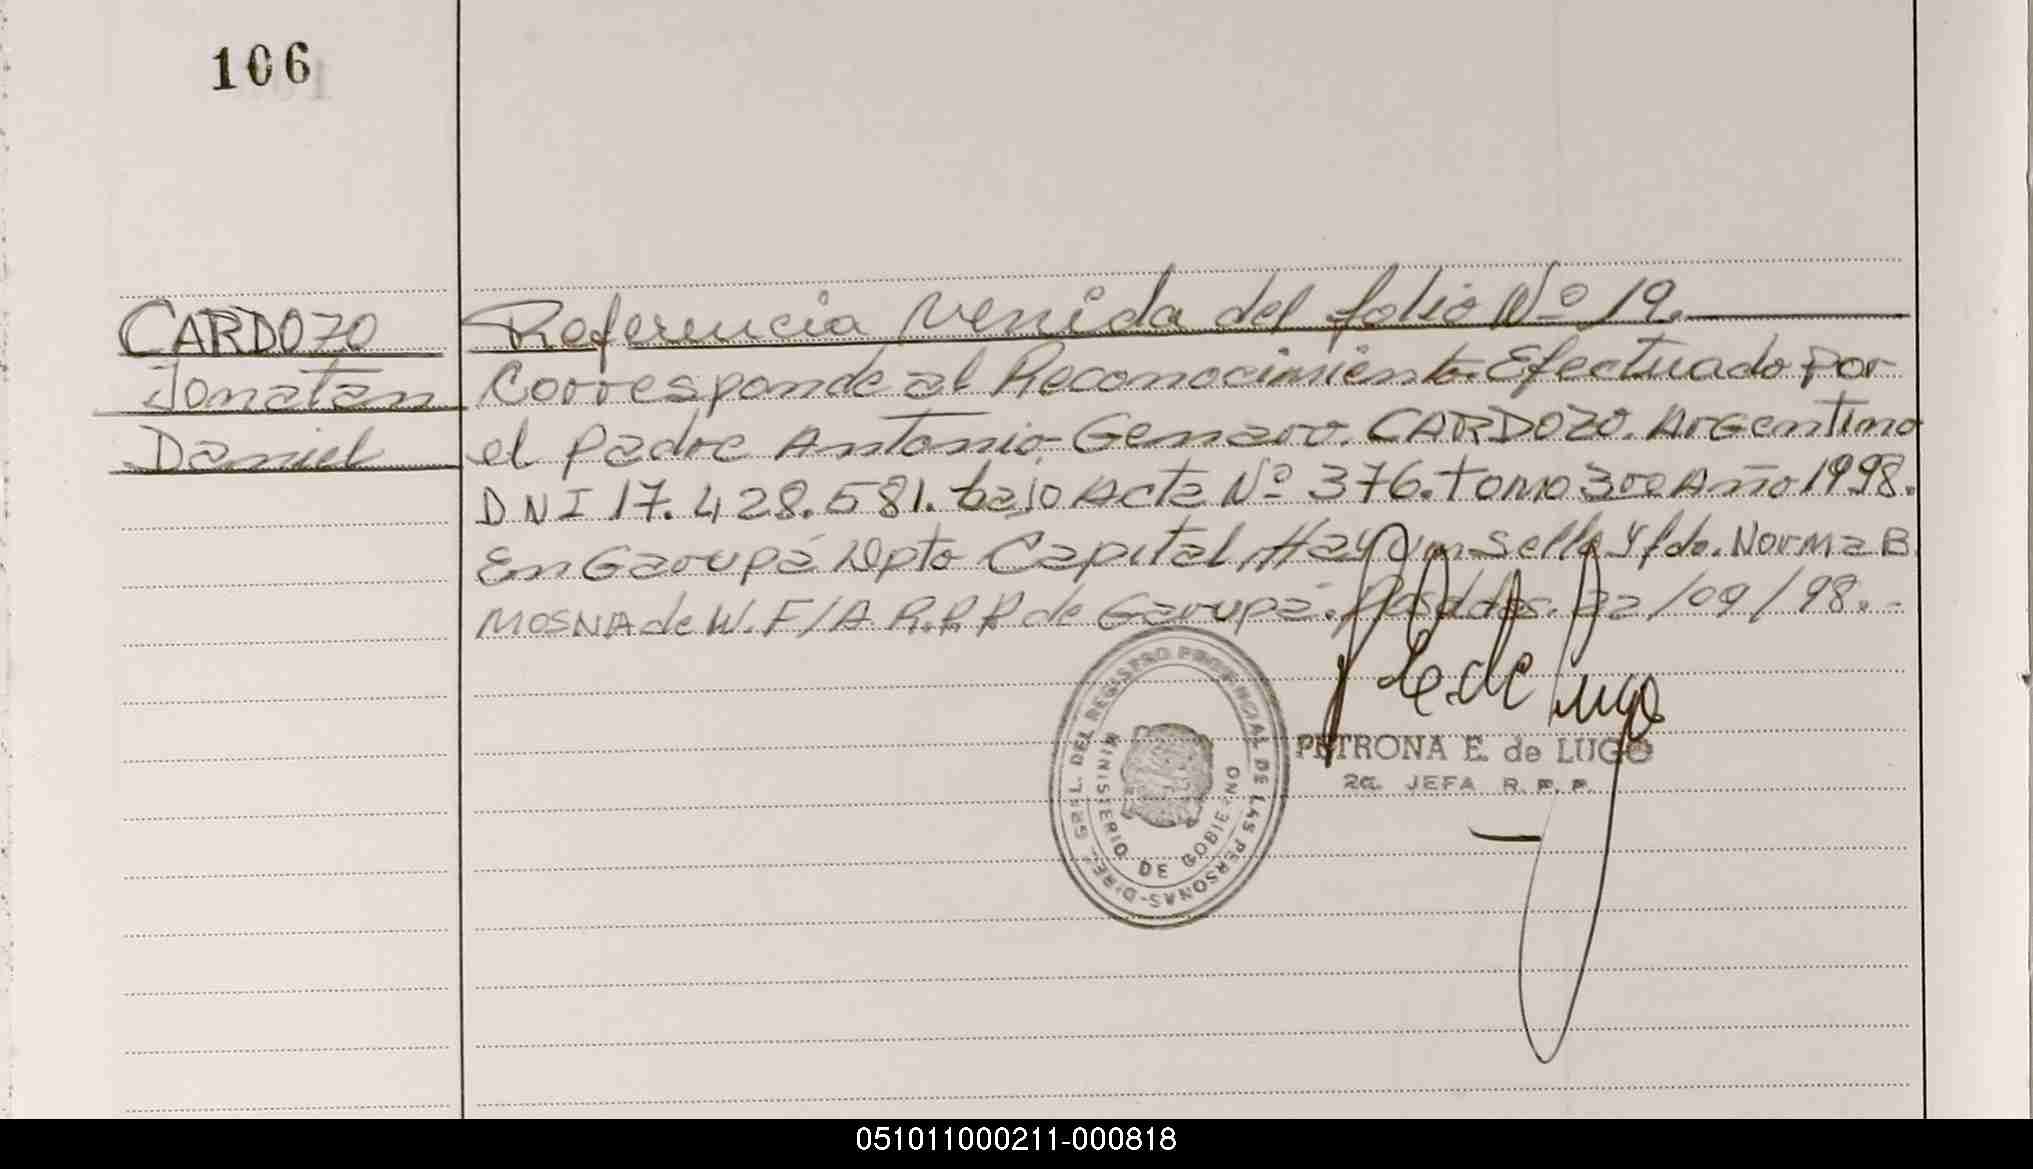 106
CARDOZO
Jonatan
Daniel
Referencia Venida del folio Nº 19.
Corresponde al Reconocimiento Efectuado por
el padre Antonio Genaro. CARDOZO. Argentino
DNI 17.428.581. bajo Acta Nº 376. tomo 300 Año 1998.
En Garupá Dpto Capital, Hay un sello y fdo. Norma B.
MOSNA de W. F/A. R.P.P de Garupá. Posadas. 22/09/98.-
DIREC. GRAL. DEL REGISTRO PROVINCIAL DE LAS PERSONAS
MINISTERIO DE GOBIERNO
de Lugo
PETRONA E. de LUGO
2a. JEFA R. P. P.
051011000211-000818